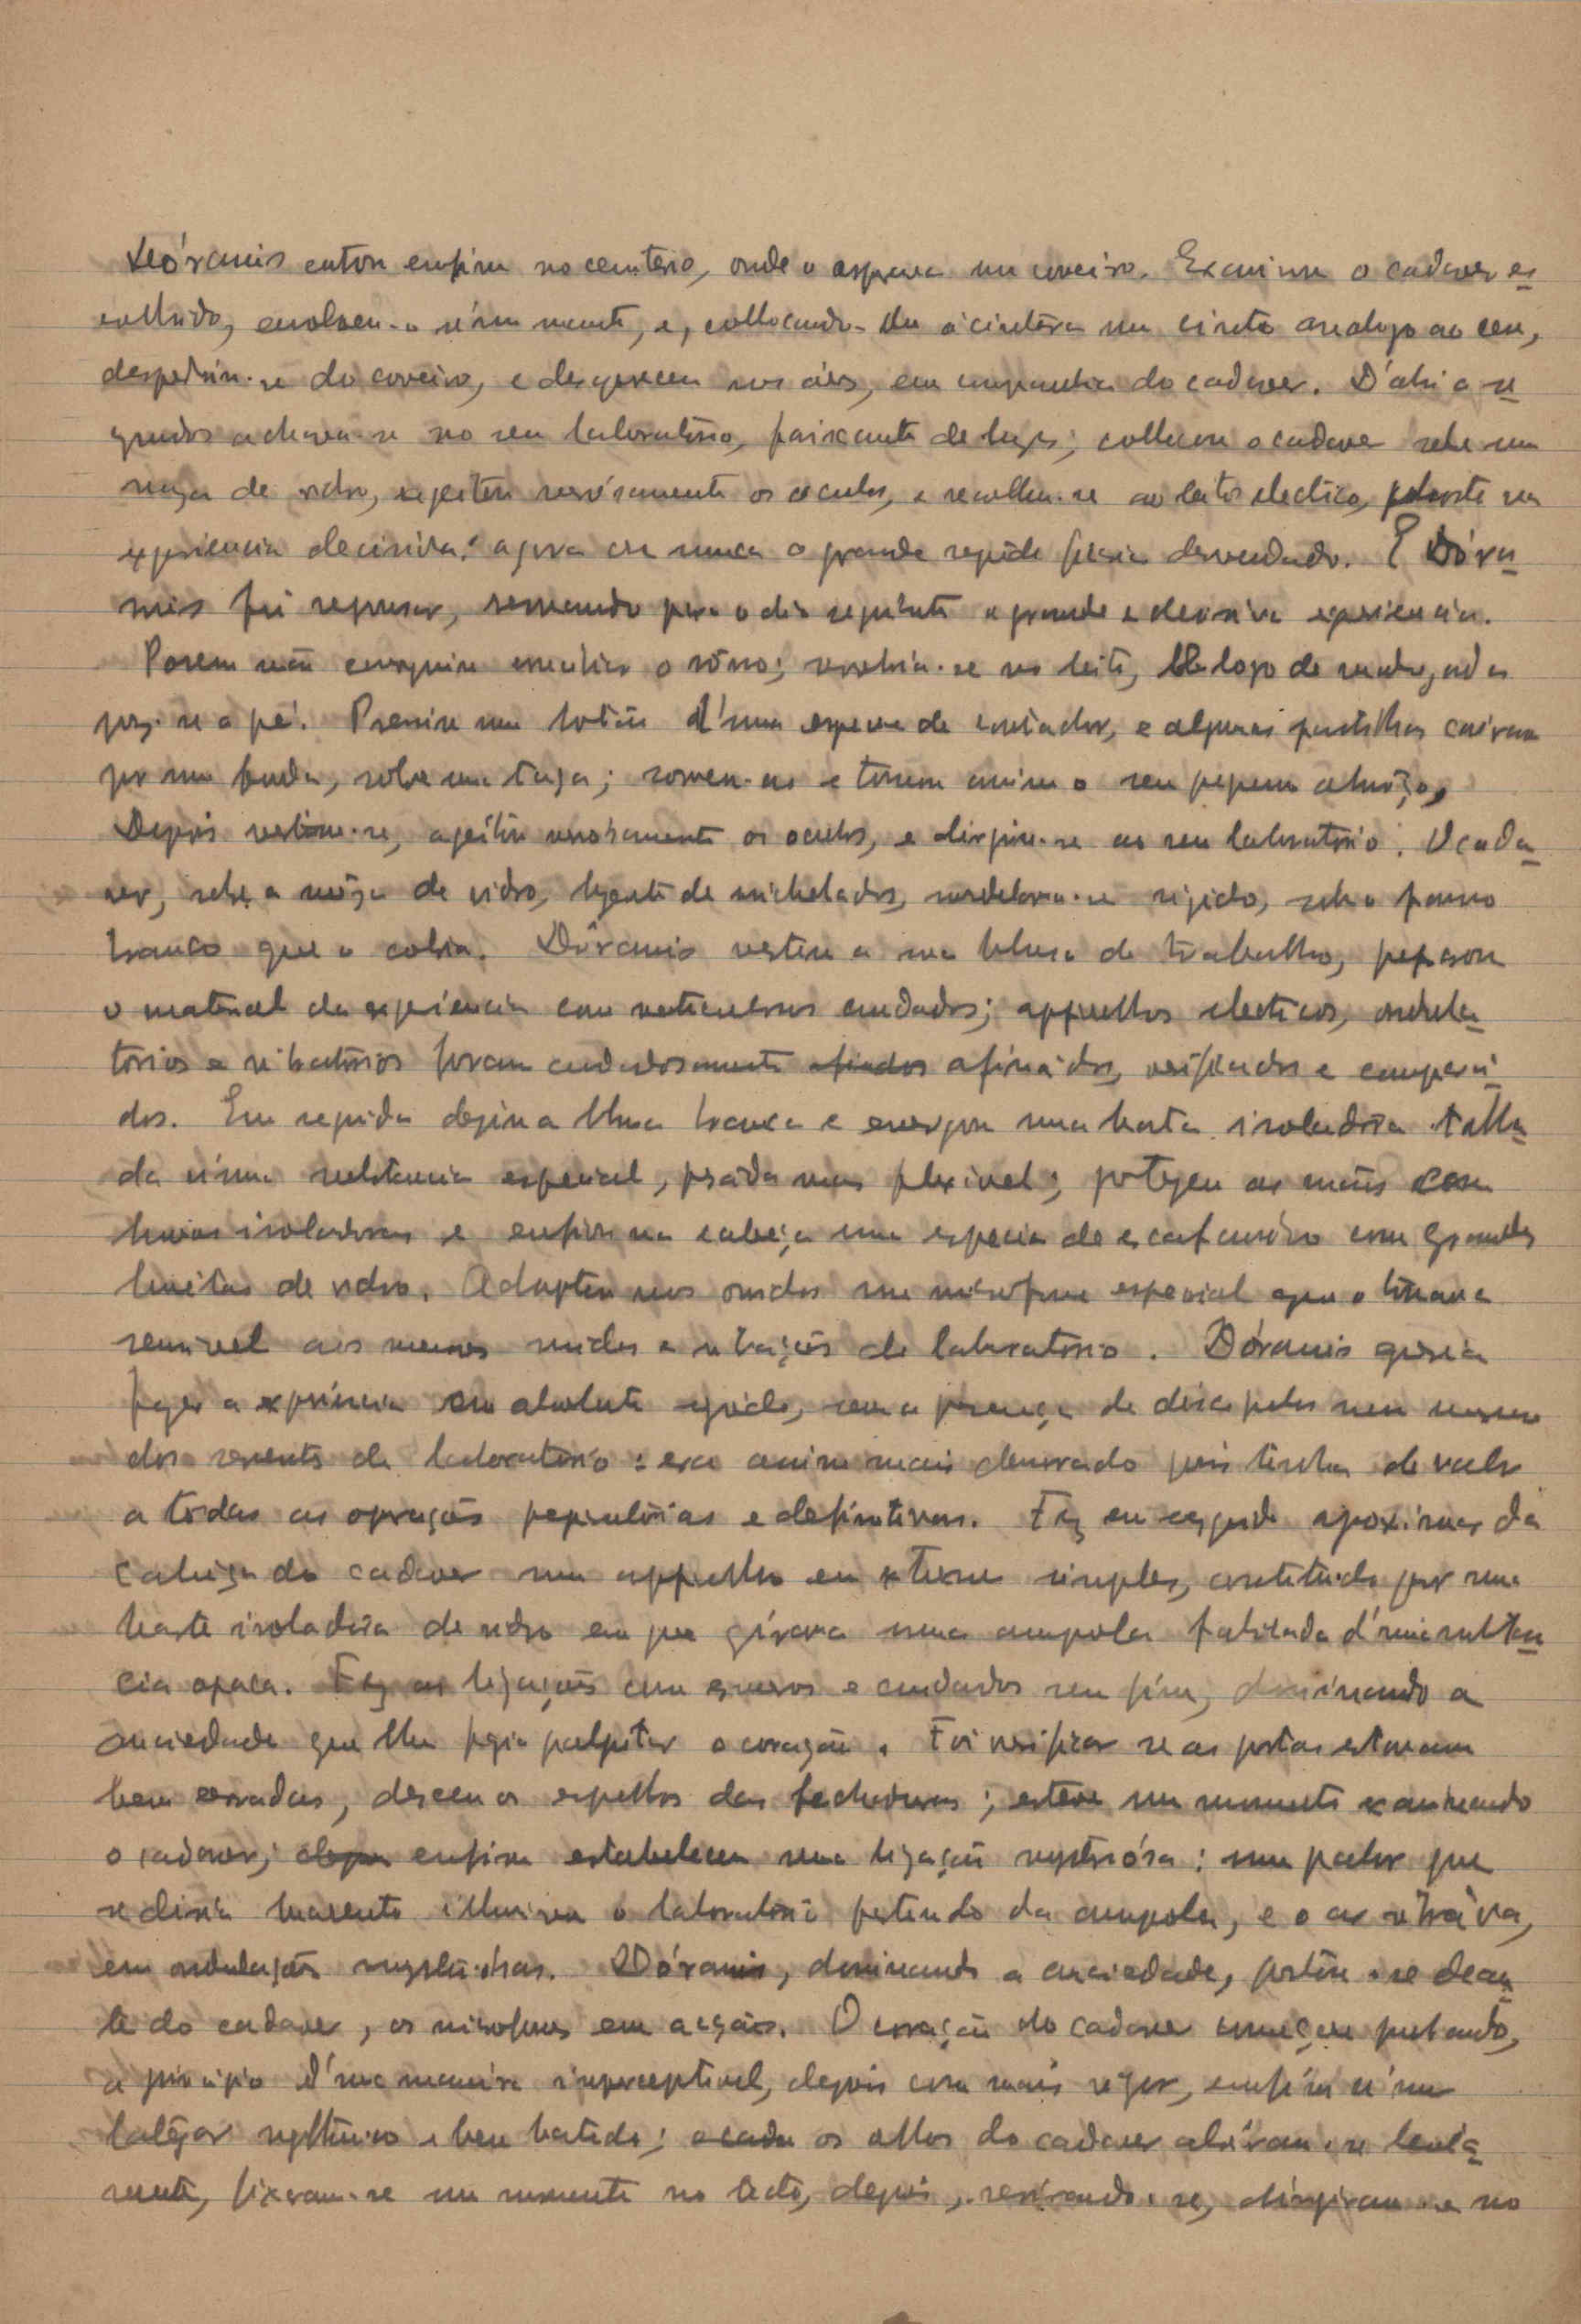 Dóramis entrou enfim no cemiterio, onde o esperava um coveiro. Examinou o cadaver es
colhido, envolveu-o n'um manto, e, collocando-lhe á cintura um cinto analogo ao seu,
despediu-se do coveiro, e desapareceu nos áres, em companhia do cadaver. D'ahi a se
gundos achava-se no seu laboratório, faiscante de luzes; collocou o cadaver sobre uma
meza de vidro, ajeitou nervósamente os oculos, e recolheu-se ao leito electrico,
experiencia decisiva: agora ou nunca o grande segredo seria desvendado. E Dóra
mis foi repousar, reservando para o dia seguinte a grande e decisiva experiencia.
Porem não conseguiu conciliar o sôno; revolvia-se no leito, logo de madrugada
poz-se a pé. Premiu um botão d'uma especie de contador, e algumas pastilhas caíram
por uma fenda, sobre uma taça; sorveu-as e tomou assim o seu pequeno almoço,
Depois vestiu-se, ajeitou nervosamente os oculos, e dirigiu-se ao seu laboratório. O cada
ver, sobre a mêza de vidro, luzente de nickelados, modelava-se rigido, sob o panno
branco que o cobria. Dóramis vestiu a sua blusa de trabalho, preparou
o material da experiencia com meticulosos cuidados; apparelhos electricos, ondula
tórios e vibratórios foram cuidadosamente afinádos, verificados e compara
dos. Em seguida despiu a blusa branca e envergou uma bata isoladôra talha
da n'uma substancia especial, pesada mas flexivel; protegeu as mãos com
luvas isoladoras e enfiou na cabeça uma especie de escafandro com grandes
lunetas de vidro. Adaptou nos ouvidos um microfone especial que o tornava
sensivel aos menores ruidos e vibrações do laboratorio. Dóramis queria
fazer a experiencia em absoluto segredo, sem a presença de discipulos nem mesmo
dos serventes do laboratório: era assim mais demorado pois tinha de valer
a todas as operações preparatórias e definitivas. Fez em seguida aproximar da
cabeça do cadaver um apparelho em extremo simples, constituido por uma
haste isoladôra de vidro em que girava uma ampola fabricada d'uma substan
cia opaca. Fez as ligações com esmeros e cuidados sem fim, dominando a
anciedade que lhe fazia palpitar o coração. Foi verificar se as portas estavam
bem cerradas, desceu os espelhos das fechaduras; esteve um momento examinando
o cadaver; enfim estabeleceu uma ligação mysteriósa: um palor que
se diria luarento illuminou o laboratorio partindo da ampola, e o ar vibráva,
em ondulações mysteriosas. Dóramis, dominando a anciedade, postou-se dean
te do cadaver, os microfones em acção. O coração do cadaver começou pulsando,
a principio d'uma maneira imperceptivel, depois com mais vigor, emfim n'um
latejar rythmico e bem batido; os olhos do cadaver abriram-se lenta
mente, fixaram-se um momento no tecto, depois, revirando-se, dirigiram-se no